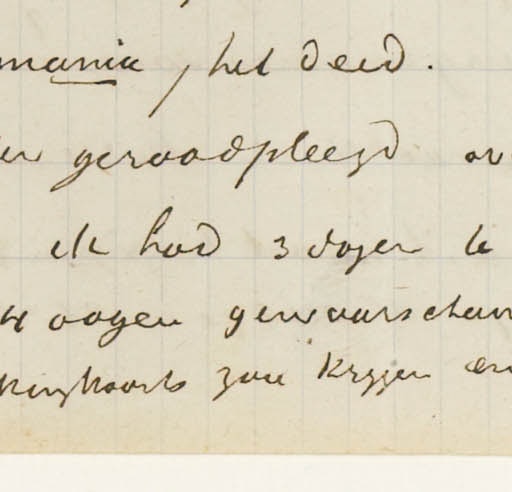 mania, het deed.
geraadpleegd
ik had 3 dagen te
4 oogen gewaarschuw
zou krygen en